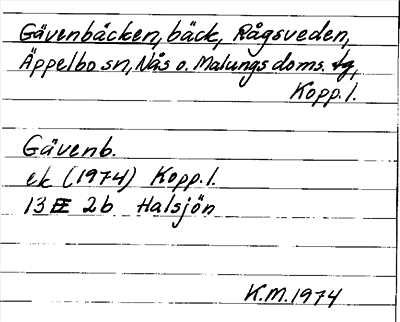 Gävenbäcken, bäck, Rågsveden,
Äppelbo sn, Nås o. Malungs doms. tg,
Kopp. l.
Gävenb.
ek (1974) Kopp. l.
13 E 2b Halsjön
K.M. 1974